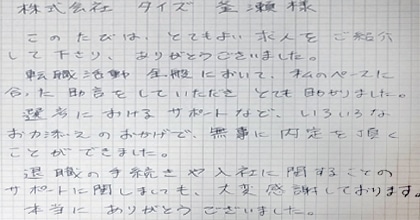 株式会社 タイズ 釜瀬様
このたびは、とてもよい求人をご紹介
して下さり、ありがとうございました。
転職活動全般において、私のペースに
合った助言をしていただき とても助かりました。
選考におけるサポートなど、いろいろな
お力添えのおかげで、無事に内定を頂く
ことができました。
退職の手続きや入社に関することの
サポートに関しましても、大変感謝しております。
本当にありがとうございました。